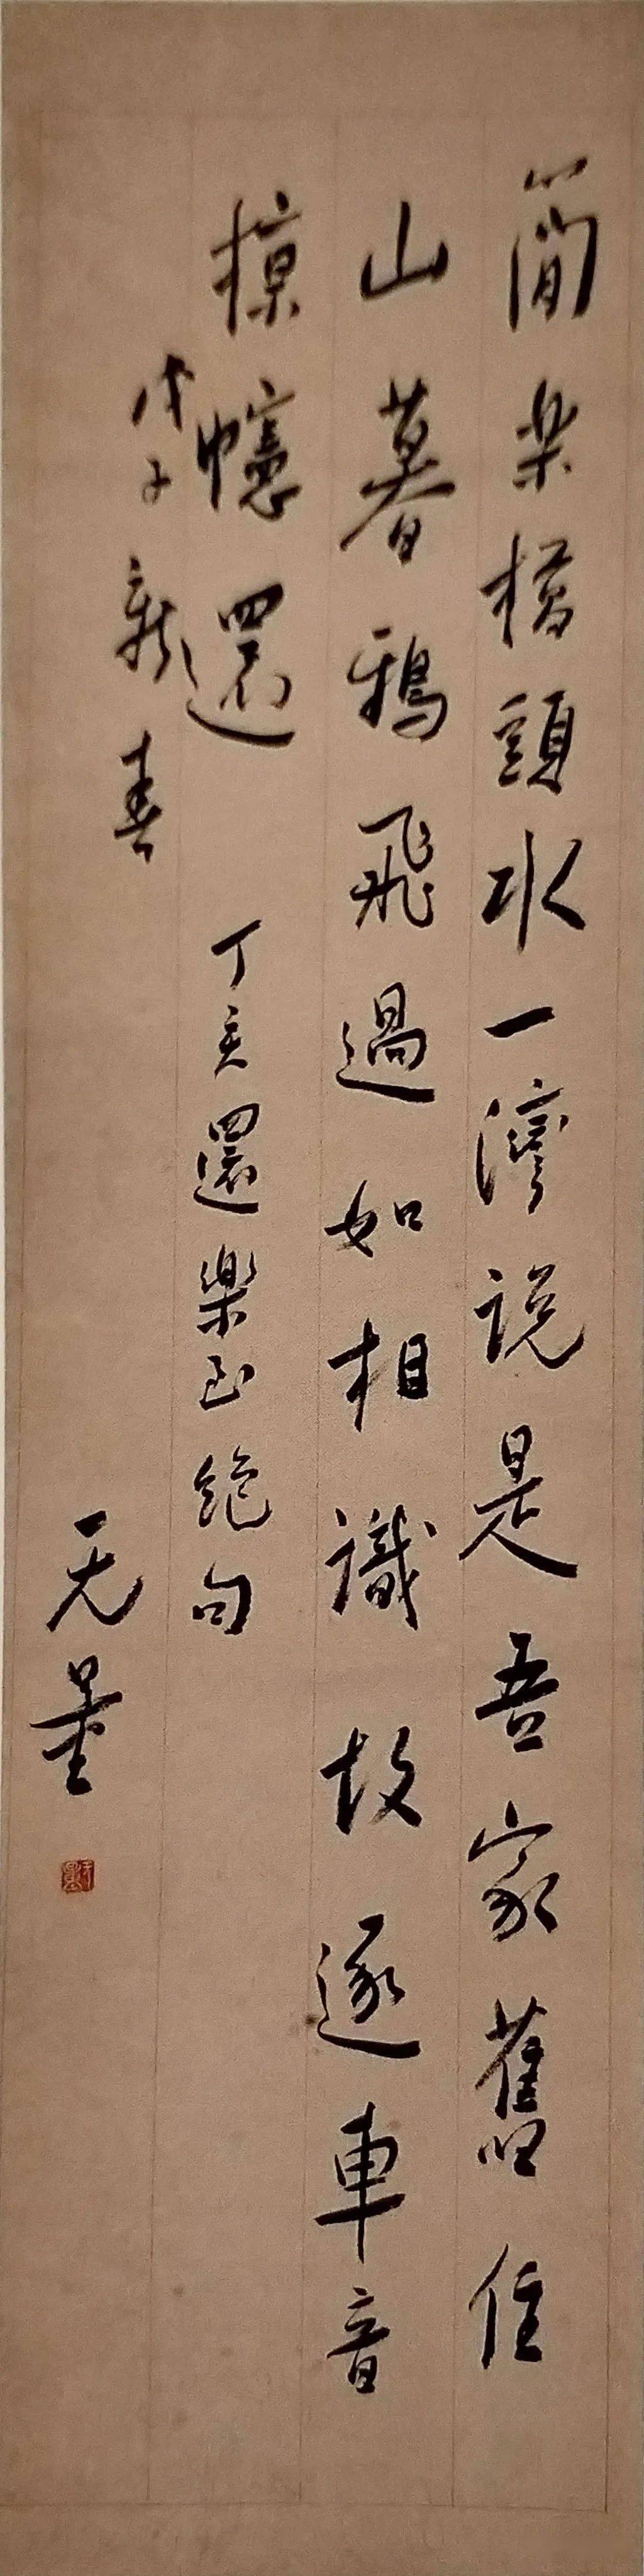 簡楽橋頭水一灣説是吾家舊住
山暮鴉飛過如相識故逐車音
掠幰還
丁亥還樂至絕句
戊子新春
无量